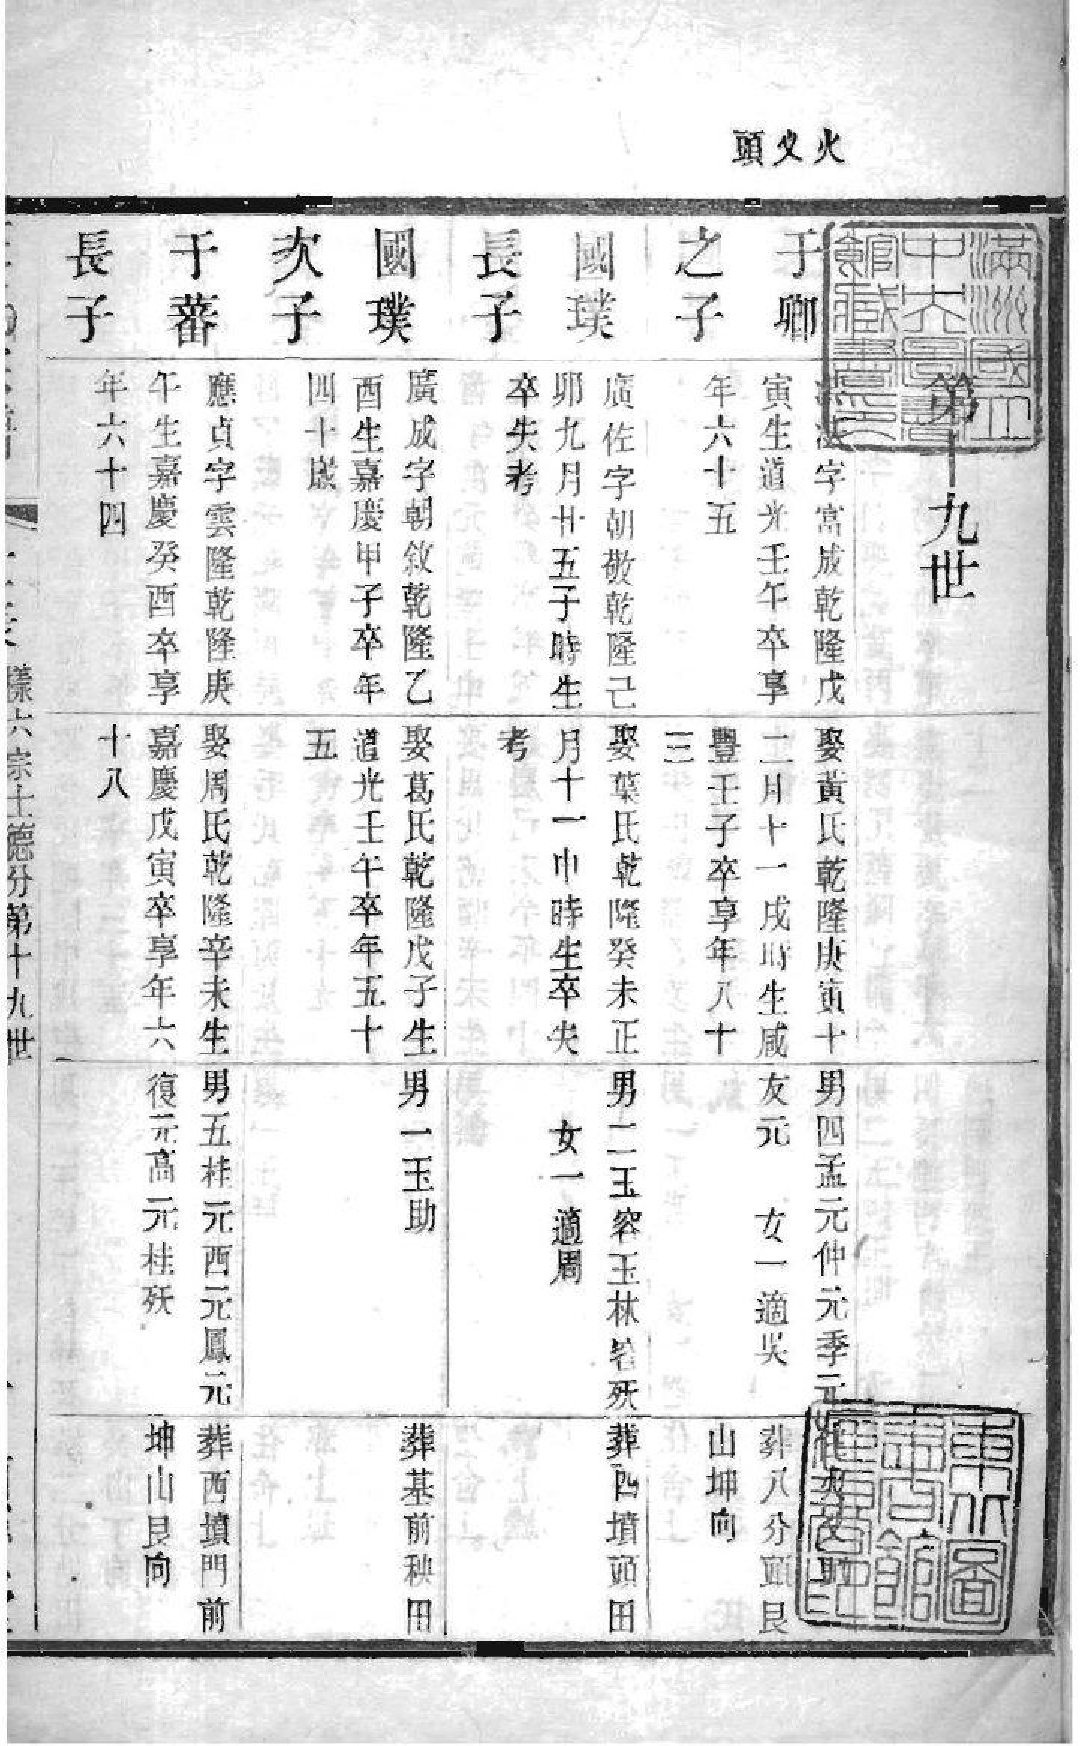 火父頭
滿洲國立
中央圖書
館藏書印
第十九世
于卿
之子
字富成乾隆戊
寅生道光壬午卒享
年六十五
娶黃氏乾隆庚寅十
二月十一戌時生咸
豐壬子卒享年八十
三
男四孟元仲元季元
友元 女一適吳
葬火父頭
葬八分頭艮
山坤向
國璞
長子
廣佐字朝敬乾隆己
卯九月廿五子時生
卒失考
娶葉氏乾隆癸未正
月十一巾時生卒失
考
男二玉容玉林岩殀
女一適周
葬西墳頭田
國璞
次子
廣成字朝敘乾隆乙
酉生嘉慶甲子卒年
四十歲
娶葛氏乾隆戊子生
道光壬午卒年五十
五
男一玉助
葬基前秧田
于蕃
長子
應貞字雲隆乾隆庚
午生嘉慶癸酉卒享
年六十四
娶周氏乾隆辛未生
嘉慶戊寅卒享年六
十八
男五桂元西元鳳元
復元高元桂殀
葬西墳門前
坤山艮向
樣六宗士德分第十九世
東北圖
書館